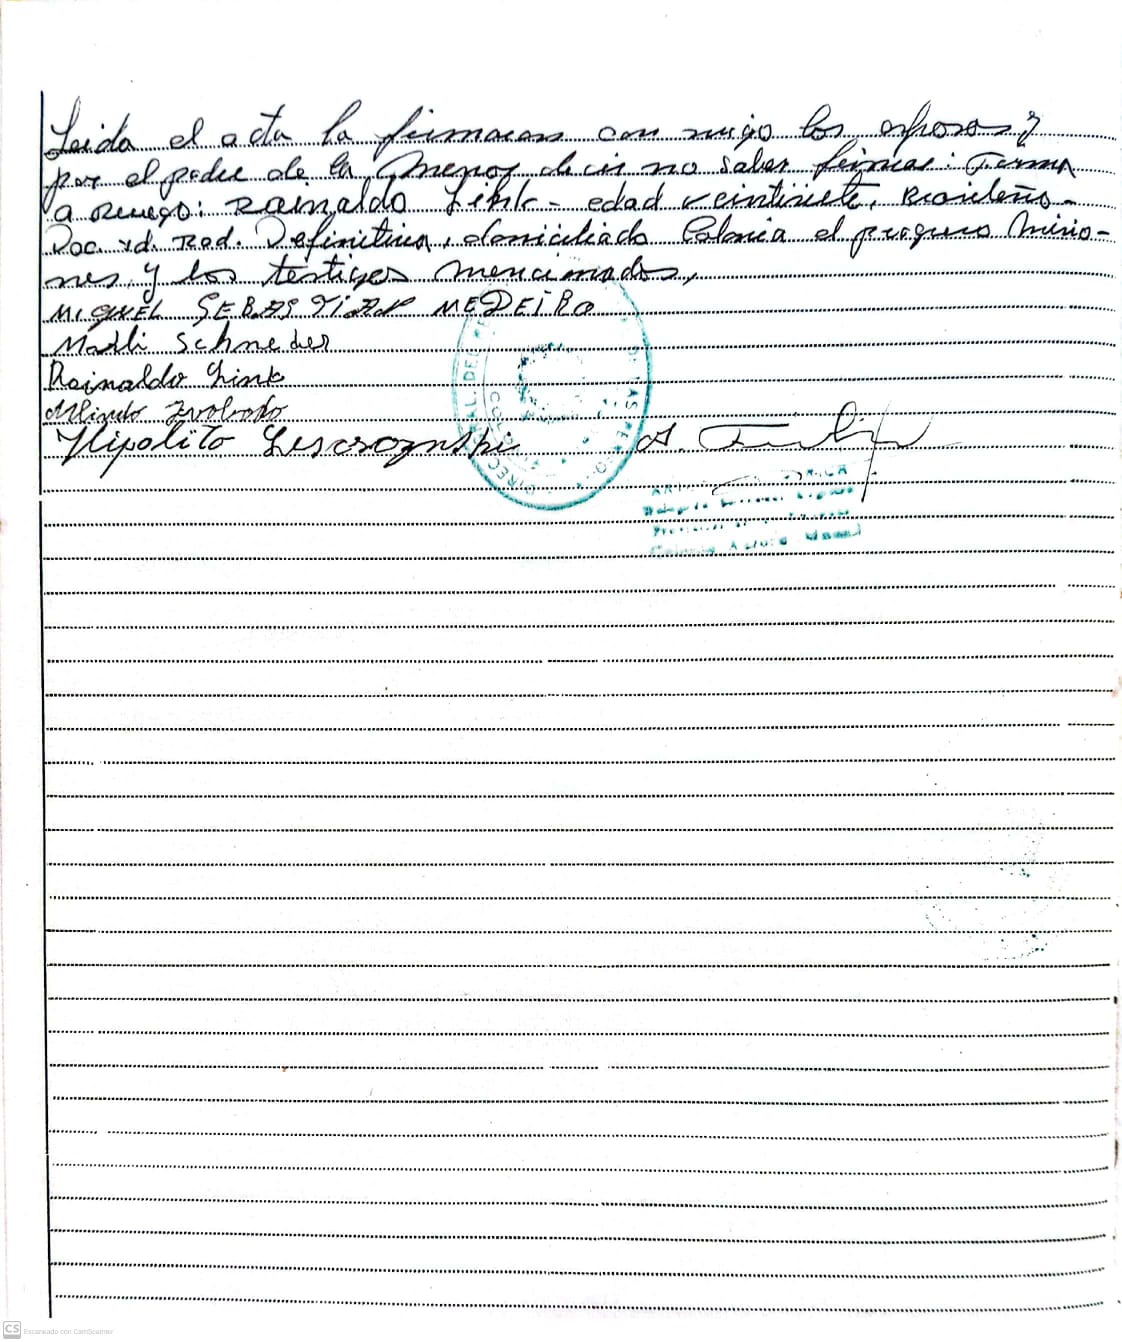 Leida el acta la firmaron con migo los esposos y
por el padre de la menor decir no saber firmar: Firma
a Ruego: Rainaldo Link - edad veintisiete, Brasileño -
Doc. Rad. Definitiva, domiciliado Colonia el progreso Misio-
nes, y los testigos mencionados,
MIGUEL SEBASTIAN MEDEIRO
Marli Schneider
Rainaldo Link
Hipolito
CS Escaneado con CamScanner